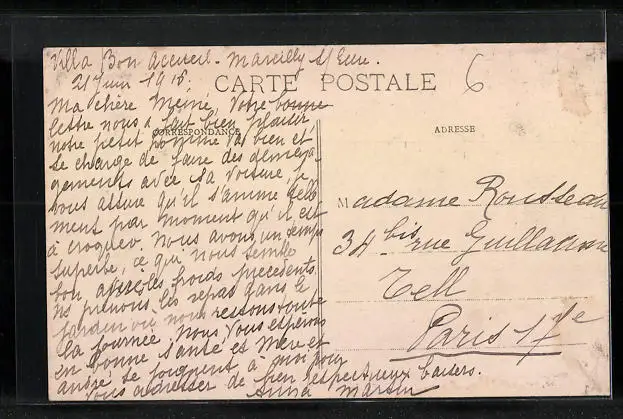 Villa Bon Accueil - Marcilly s/ Eure.
21 Juin 1916.
CARTE POSTALE
6
CORRESPONDANCE
ADRESSE
Ma chère Mémé, Votre bonne
lettre nous a fait bien plaisir
notre petit homme va bien et
se charge de faire des déména
gements avec sa voiture, je
vous assure qu'il s'amuse telle
ment par moment qu'il est
à croquer. Nous avons un temps
superbe, ce qui nous semble
bon après les froids précédents.
ns prenons les repas dans le
jardin où nous restons toute
la journée. Nous vous espérons
en bonne santé et Mère et
André se joignent à moi pour
vous adresser de bien respectueux baisers.
Anna Martin
Madame Rousseau
34 bis rue Guillaume
Tell
Paris 17e